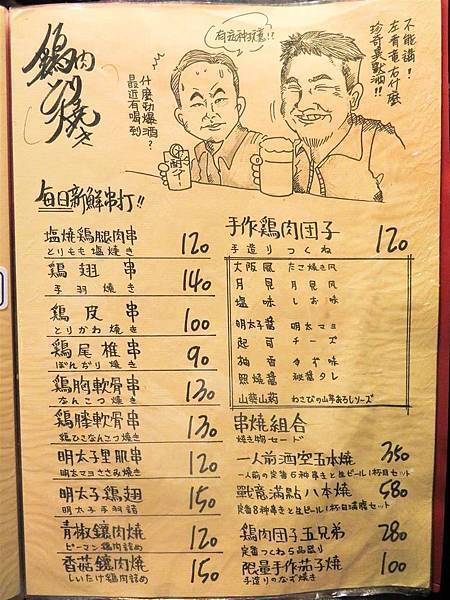 鶏肉
とり焼き
有這种玩意!!
不能講!
左青竜右什麼
珍奇異獸酒!!
什麼勁爆酒?
最近有喝到
毎日新鮮串打!!
塩焼鶏腿肉串 120
とりもも塩焼き
鶏翅串 140
手羽焼き
鶏皮串 100
とりかわ焼き
鶏尾椎串 90
ぼんぢり焼き
鶏胸軟骨串 130
なんこつ焼き
鶏膝軟骨串 130
鶏ひざなんこつ焼き
明太子里肌串 120
明太マヨささみ焼き
明太子鶏翅 150
明太子手羽詰
青椒鑲肉焼 120
ピーマン鶏肉詰め
香菇鑲肉焼 150
しいたけ鶏肉詰め
手作鶏肉団子 120
手造りつくね
大阪風 たこ焼き風
月見 月見風
塩味 しお味
明太子醤 明太マヨ
起司 チーズ
柚香 ゆず味
照焼醤 秘醤タレ
山葵山薬 わさびの山芋おろしリーズ
串焼組合
焼き物セード
一人前酒空五本焼 350
一人前の定番5種串きと生ビール1杯目セット
戰竜滿點八本焼 580
定番8種串きと生ビール1杯目満腹セット
鶏肉団子五兄弟 280
定番つくね5品盛り
限量手作茄子焼 100
手造りのなす焼き